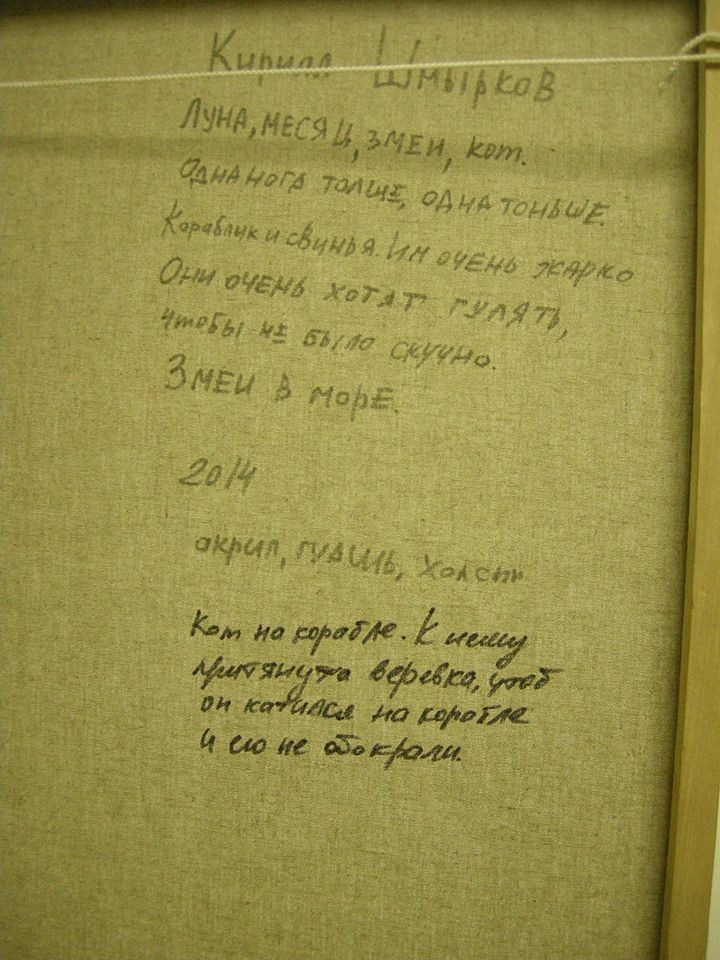 Кирилл Шмырков
Луна, месяц, змеи, кот.
Одна нога толще, одна тоньше.
Кораблик и свинья. Им очень жарко
Они очень хотят гулять,
чтобы не было скучно.
Змеи в море.
2014
акрил, гуашь, холст
Кот на корабле. К нему
притянута веревка, чтоб
он катился на корабле
и его не обокрали.